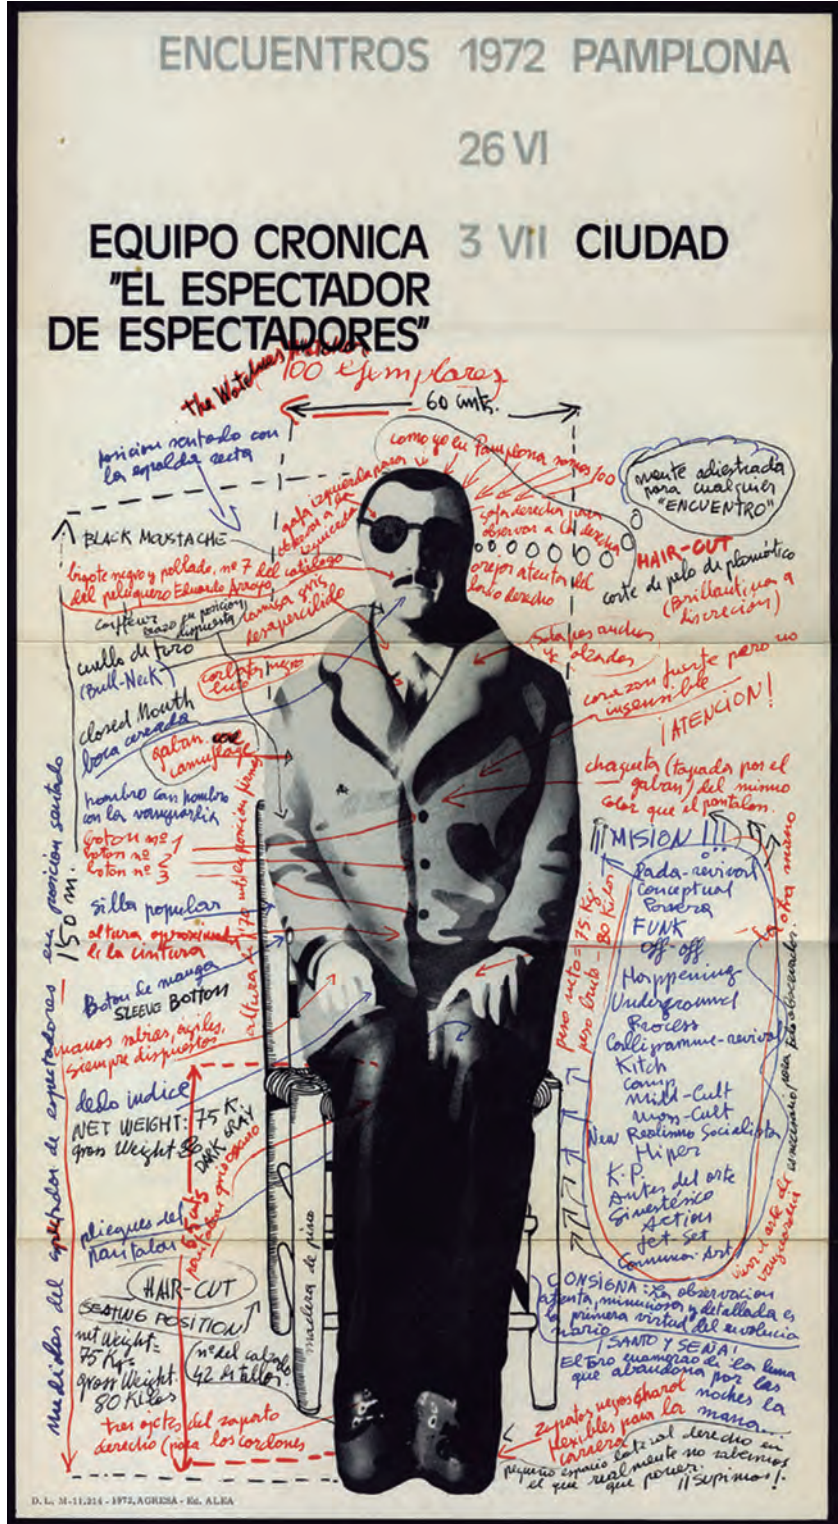 ENCUENTROS 1972 PAMPLONA
26 VI
3 VII
EQUIPO CRONICA
CIUDAD
"EL ESPECTADOR
DE ESPECTADORES"
The Watchers
100 ejemplares
60 cmts.
posicion sentado con
la espalda recta
como yo en Pamplona somos 100
gafa izquierda para
observar a la
izquierda
gafa derecha para
observar a la derecha
orejas atentas del
lado derecho
mente adiestrada
para cualquier
"ENCUENTRO"
HAIR-CUT
corte de pelo diplomático
(Brillantina a
discrecion)
BLACK MOUSTACHE
bigote negro y poblado, nº 7 del catálogo
del peluquero Eduardo Arroyo
brazo en posicion
dispuesta
camisa gris
desapercibido
cuello de toro
(Bull-Neck)
corbata negro
solapas anchas
y alzadas
corazon fuerte pero no
insensible
¡ATENCION!
closed Mouth
boca cerrada
gaban
camuflage
chaqueta (tapada por el
gaban) del mismo
color que el pantalon.
hombro con hombro
con la vanguardia
boton nº 1
boton nº 2
boton nº 3
silla popular
altura aproximada
de la cintura
Boton de manga
SLEEVE BOTTON
manos sabias, ágiles,
siempre dispuestas
dedo indice
NET WEIGHT: 75 K.
gross Weight
DARK GRAY
pantalon gris oscuro
pliegues del
pantalon
HAIR-CUT
SEATING POSITION
net Weight =
75 Kg =
gross Weight.
80 Kilos
nº del calzado
42 de tallos.
tres ojetes del zapato
derecho (para los cordones
Medidas del espectador de espectadores en posicion sentado
150 m.
madera de pino
peso neto = 75 Kg.
peso bruto = 80 Kilos
¡¡¡MISION!!!
Dada-revival
Conceptual
Povera
FUNK
Off-off
Happening
Underground
Process
Calligramme-revival
Kitch
Camp
Mild-Cult
Mass-Cult
New Realismo Socialista
Hiper
K.P.
Antes del arte
Sinestésico
Action
Jet-Set
Comunica-Art
vivir el arte de
vanguardia
CONSIGNA: La observacion
atenta, minuciosa y detallada es
la primera virtud del revolucio
nario
¡SANTO Y SEÑA!
El toro enamorao de la luna
que abandona por las
noches la
mana...
zapatos negros charol
flexibles para la
carrera
pequeño espacio lateral derecho en
el que realmente no sabemos
que poner.
¡¡Supimos!!
D. L. M-11.214 - 1972, AGRESA - Ed. ALEA